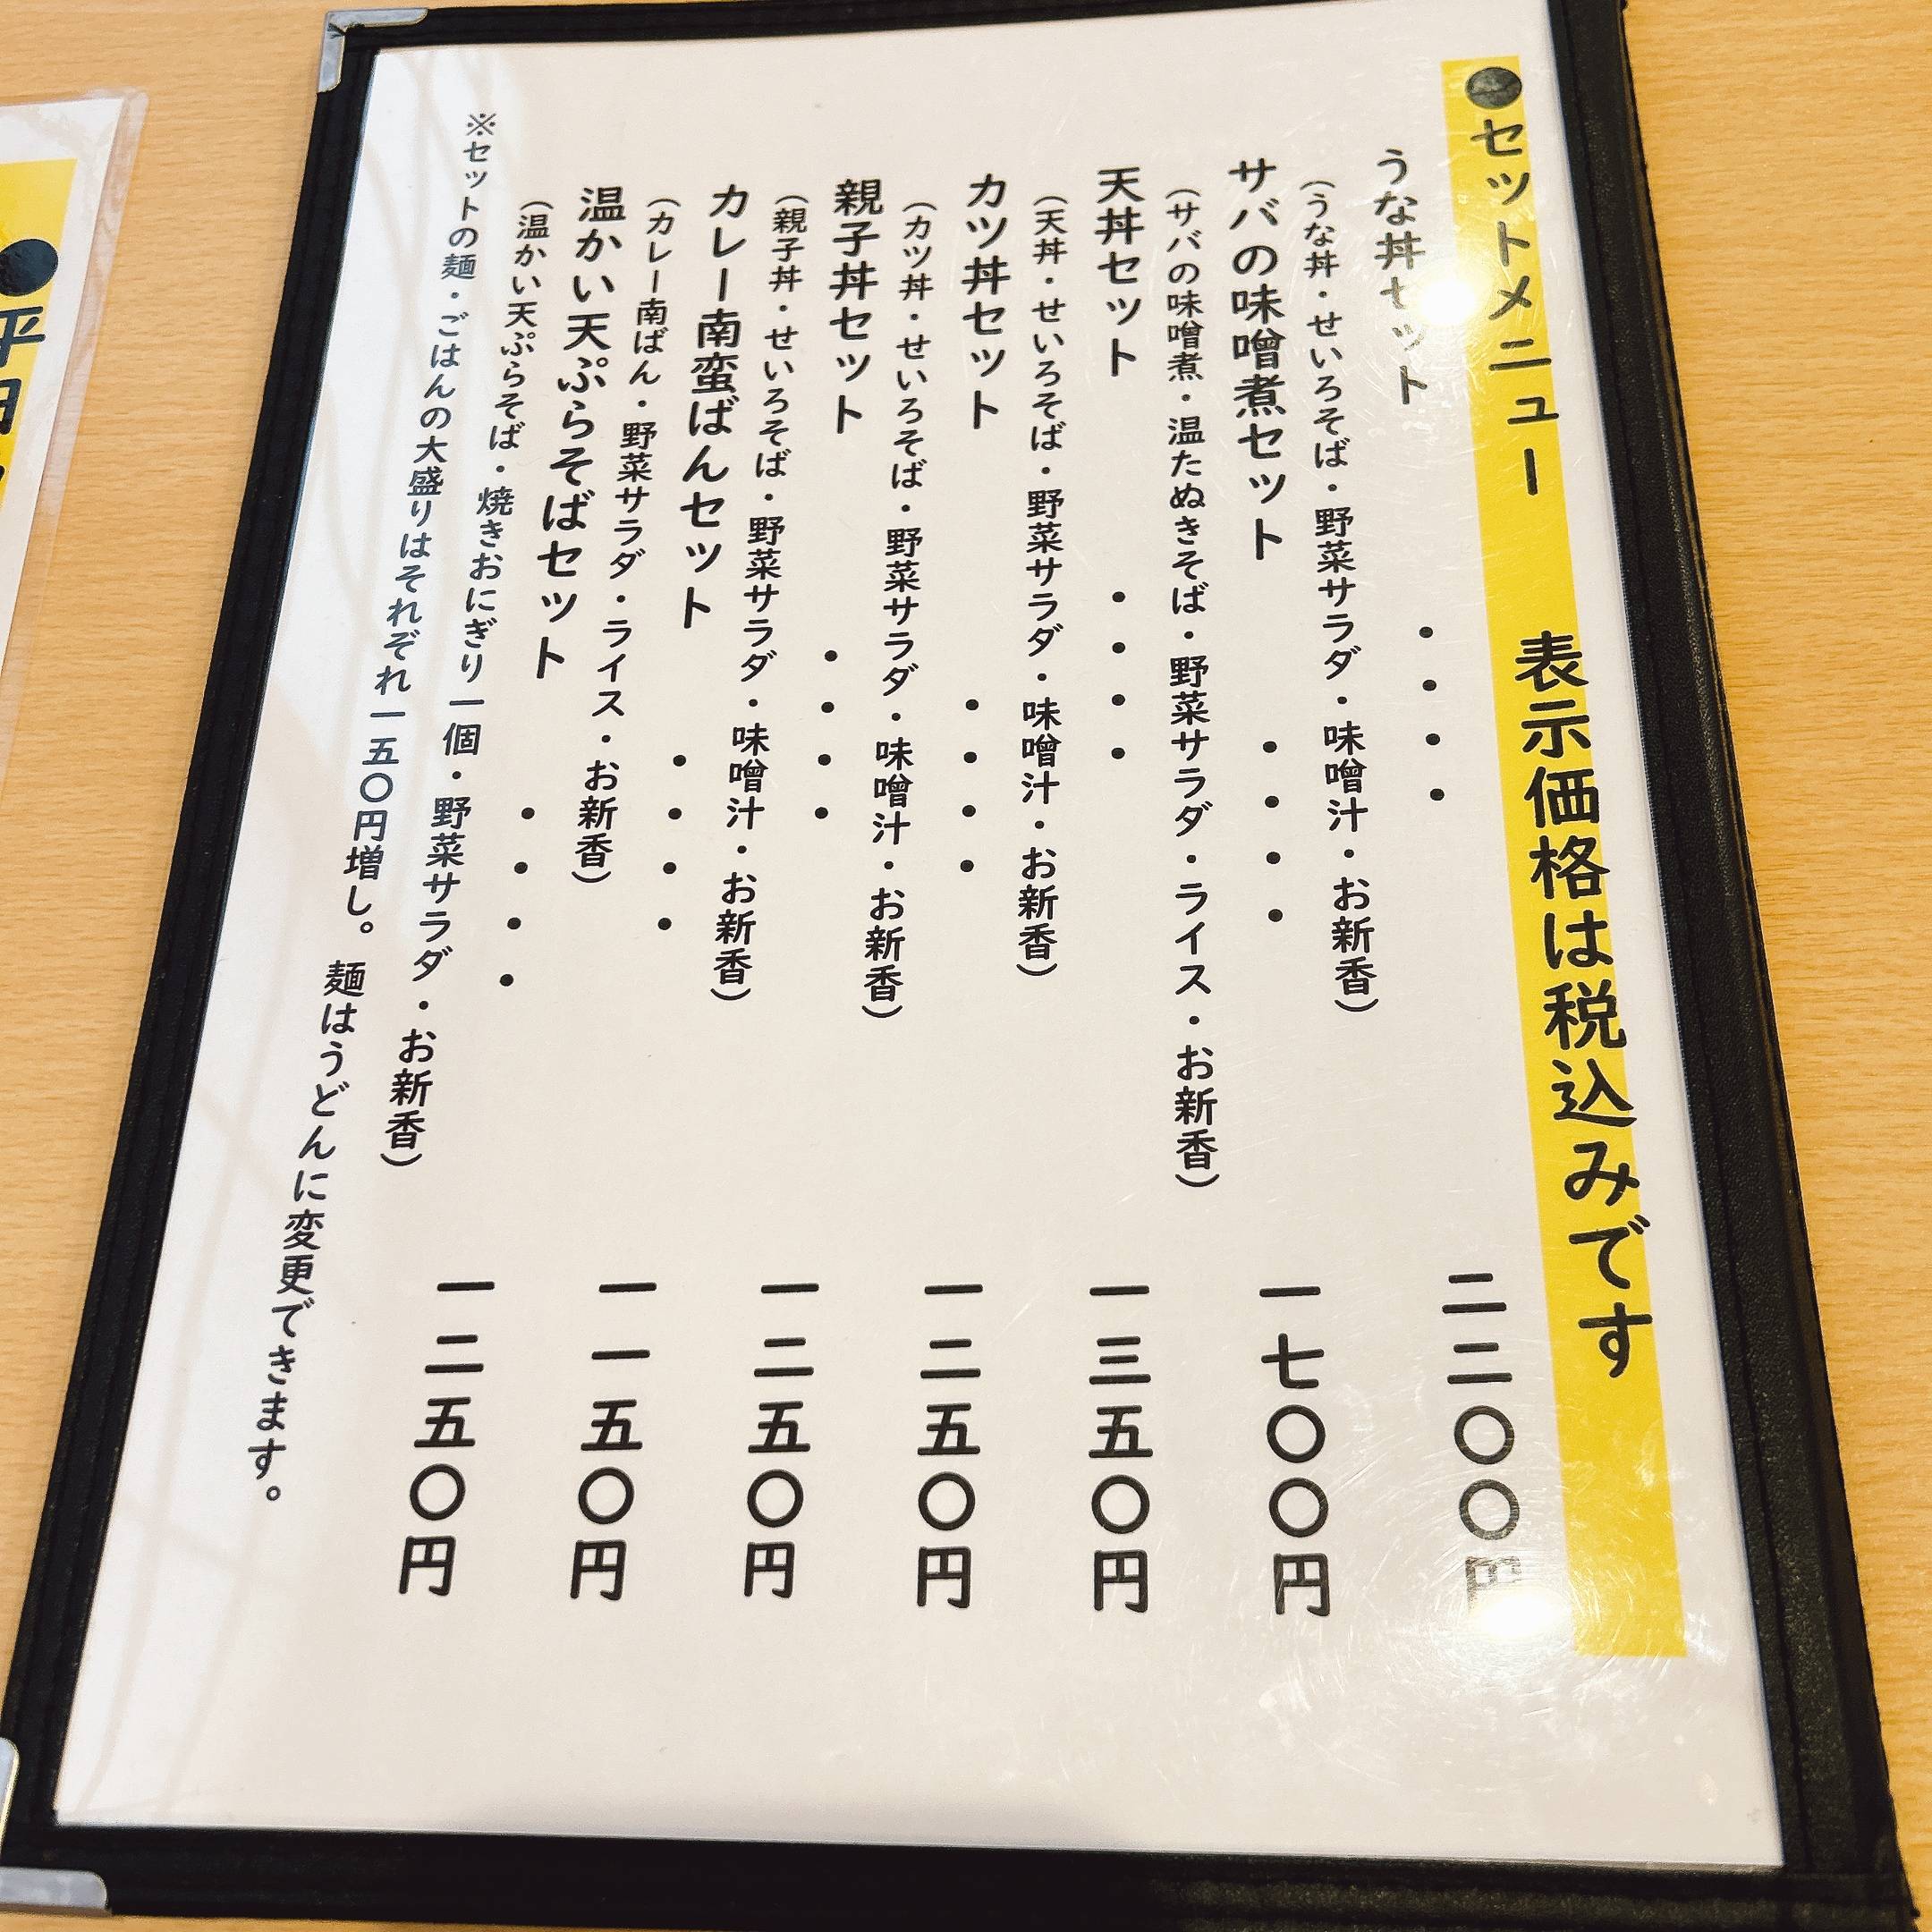 ●セットメニュー 表示価格は税込みです
うな丼セット ・・・・ 二二〇〇円
(うな丼・せいろそば・野菜サラダ・味噌汁・お新香)
サバの味噌煮セット ・・・・ 一七〇〇円
(サバの味噌煮・温たぬきそば・野菜サラダ・ライス・お新香)
天丼セット ・・・・ 一三五〇円
(天丼・せいろそば・野菜サラダ・味噌汁・お新香)
カツ丼セット ・・・・ 一二五〇円
(カツ丼・せいろそば・野菜サラダ・味噌汁・お新香)
親子丼セット ・・・・ 一二五〇円
(親子丼・せいろそば・野菜サラダ・味噌汁・お新香)
カレー南蛮ばんセット ・・・・ 一一五〇円
(カレー南ばん・野菜サラダ・ライス・お新香)
温かい天ぷらそばセット ・・・・ 一二五〇円
(温かい天ぷらそば・焼きおにぎり一個・野菜サラダ・お新香)
※セットの麺・ごはんの大盛りはそれぞれ一五〇円増し。 麺はうどんに変更できます。